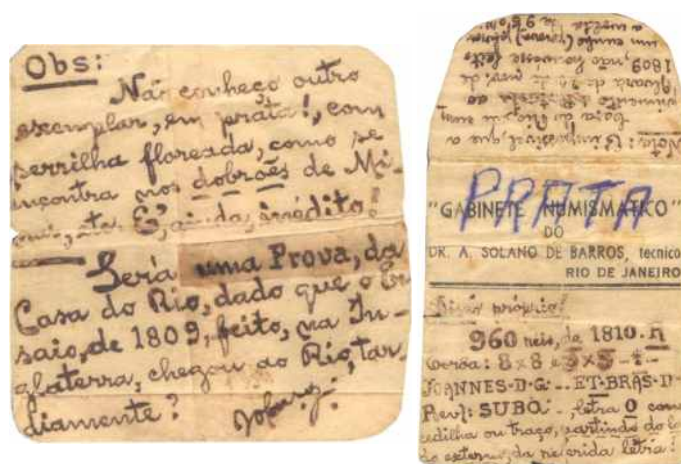 Obs:
Não conheço outro
exemplar, em prata!, com
serrilha floreada, como se
encontra nos dobrões de Mi-
E', ainda, inédito!
Será uma Prova, da
Casa do Rio, dado que o En-
saio, de 1809, feito, na In-
glaterra, chegou ao Rio, tar-
diamente?
Nota: E' impossivel, que, a
Casa do Rio,
Alvará de 20 de nov. de
1809
PRATA
"GABINETE NUMISMATICO"
DO
DR. A. SOLANO DE BARROS, tecnico
RIO DE JANEIRO
960 reis, de 1810. R
Corôa: 8 x 8 e 5 x 5
JOANNES·D·G·..ET·BRAS·D·
Rev/: SUBQ. letra Q com
cedilha ou traço, partindo do la-
do externo, da referida letra!